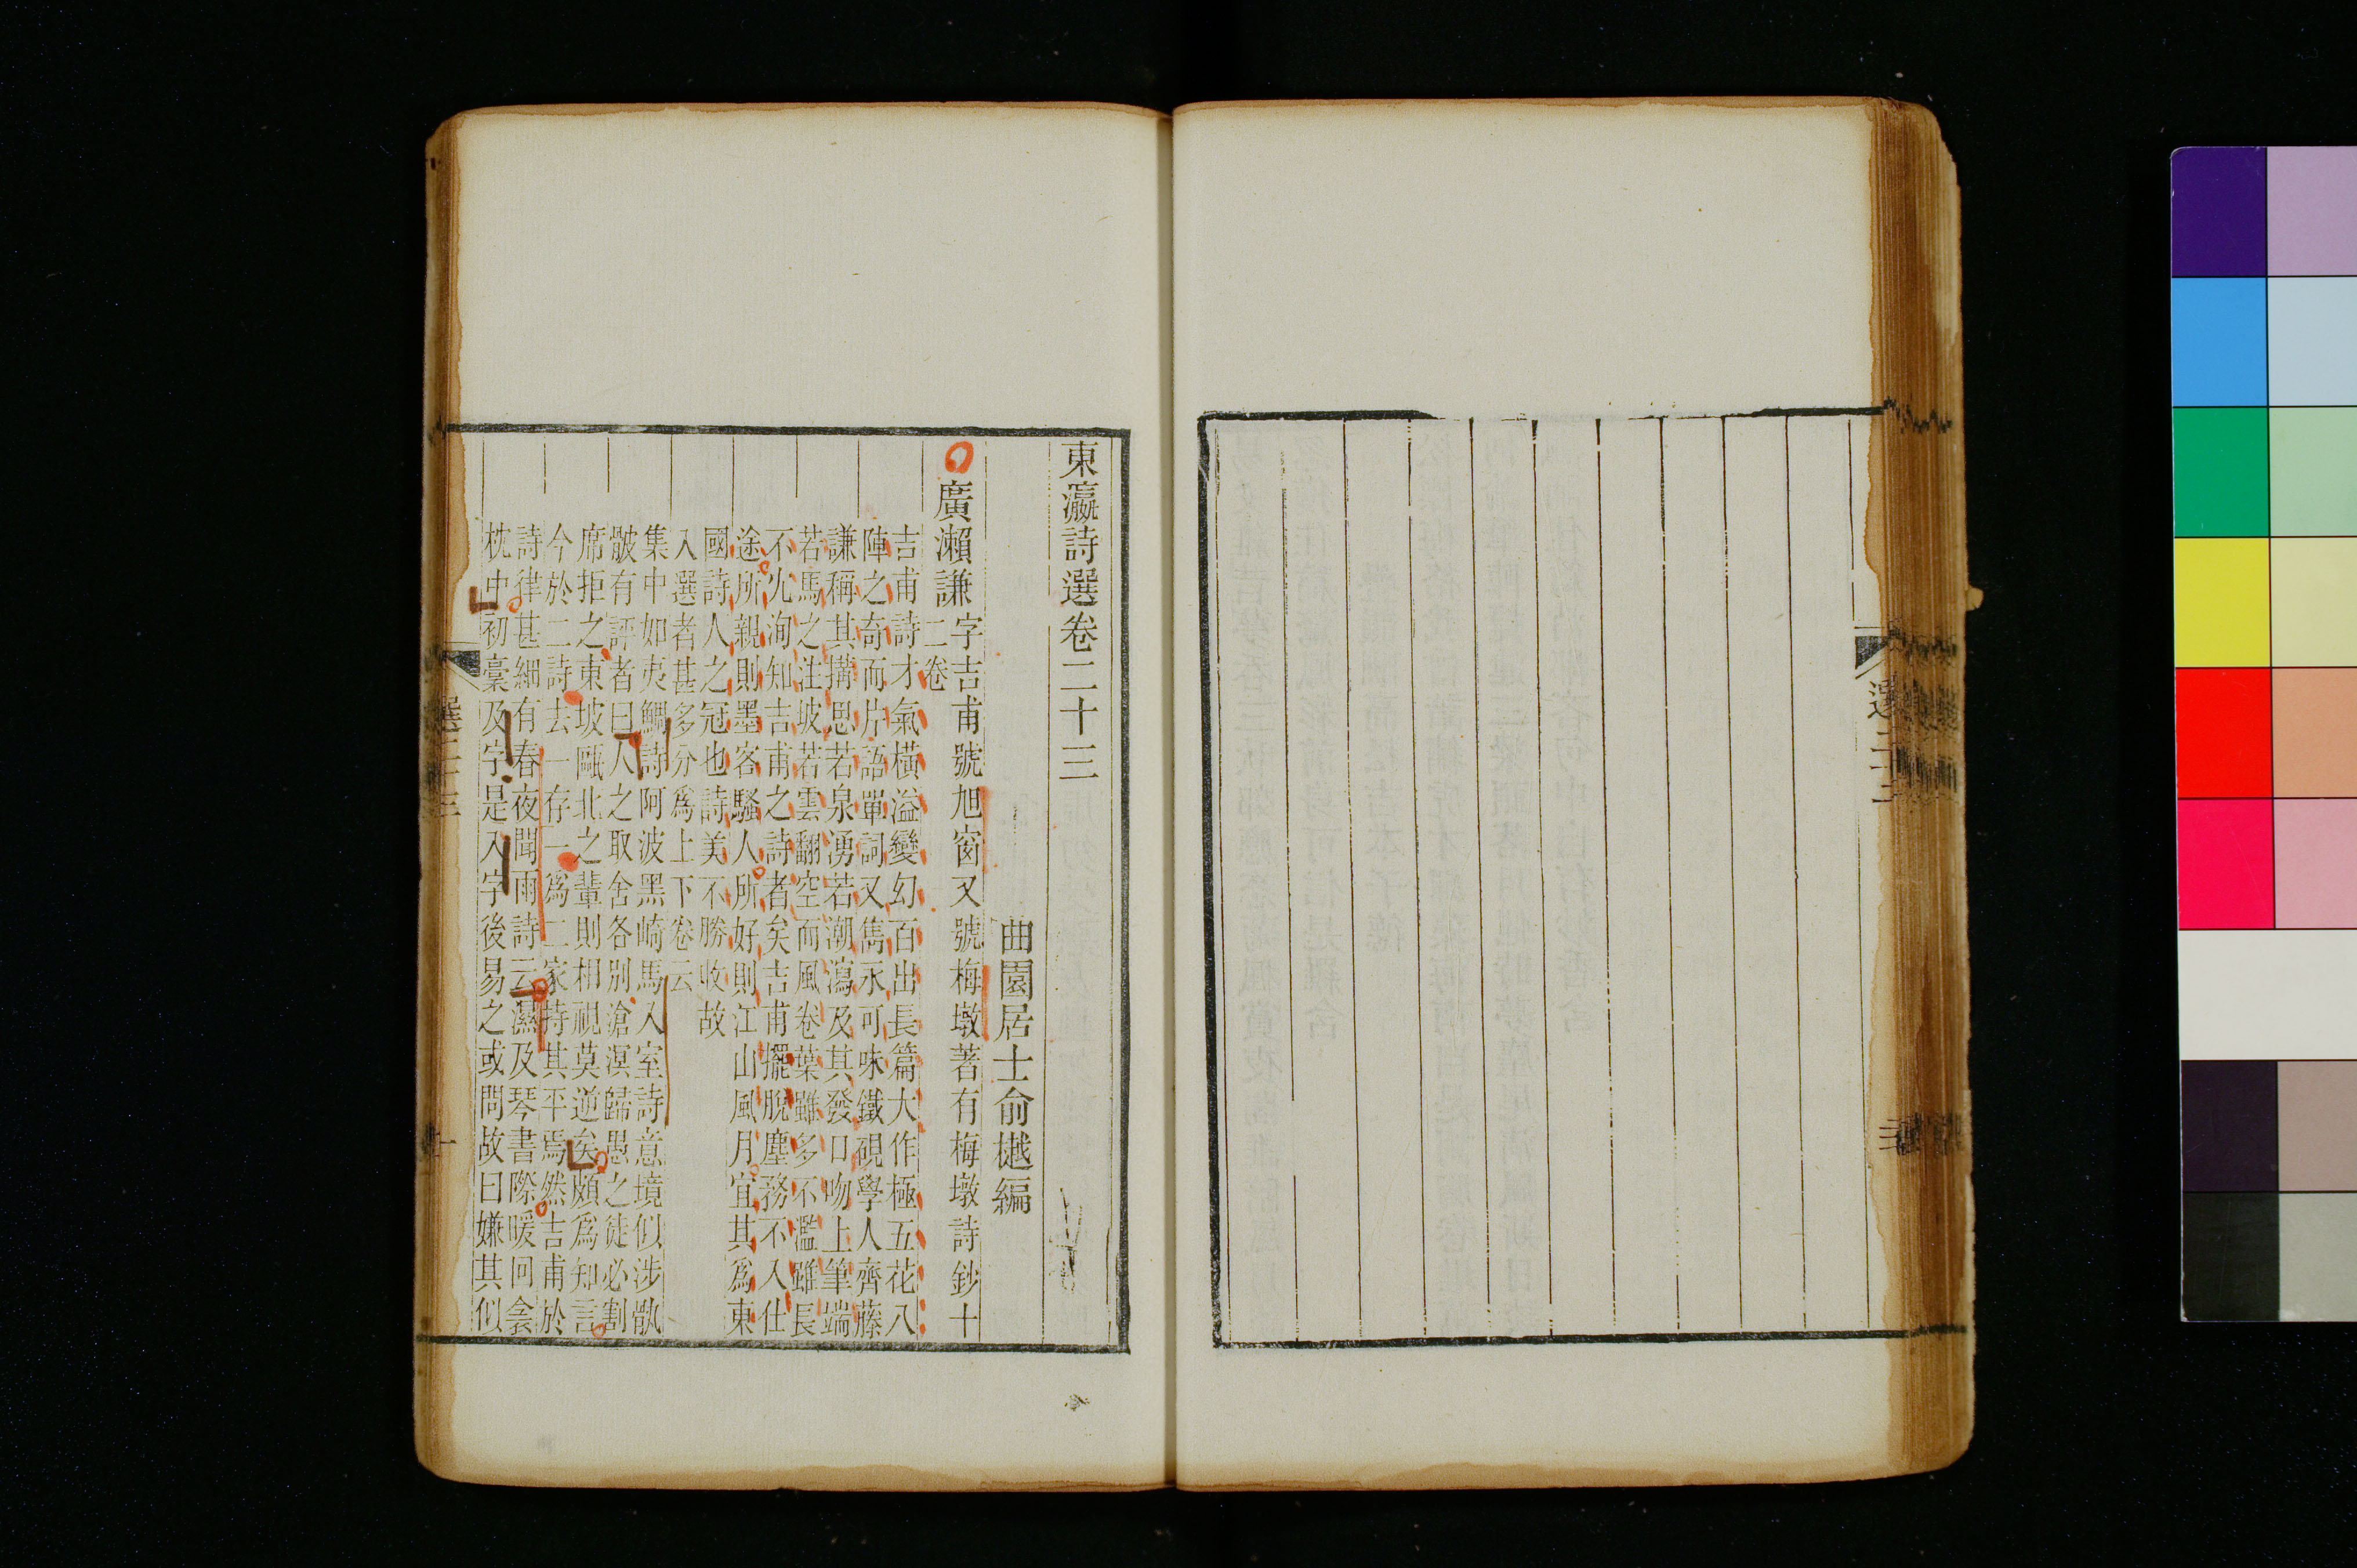 東瀛詩選卷二十三
曲園居士俞樾編
廣瀨謙字吉甫號旭窗又號梅墩著有梅墩詩鈔十
二卷
吉甫詩才氣橫溢變幻百出長篇大作極五花八
陣之奇而片語單詞又雋永可味鐵硯學人齊藤
謙稱其搆思若泉湧若潮瀉及其發口吻上筆端
若馬之注坡若雲翻空而風卷葉雖多不濫雖長
不冗洵知吉甫之詩者矣吉甫擺脫塵務不入仕
途所親則墨客騷人所好則江山風月宜其爲東
國詩人之冠也詩美不勝收故
入選者甚多分爲上下卷云
集中如夷鯛詩阿波黑崎馬入室詩意境似涉骩
骳有評者曰人之取舍各別滄溟歸愚之徒必割
席拒之東坡甌北之輩則相視莫逆矣頗爲知言
今於二詩去一存一爲二家持其平焉然吉甫於
詩律甚細有春夜聞雨詩云濕及琴書際暖回衾
枕中初稾及字是入字後易之或問故曰嫌其似
選二十三
選二十二